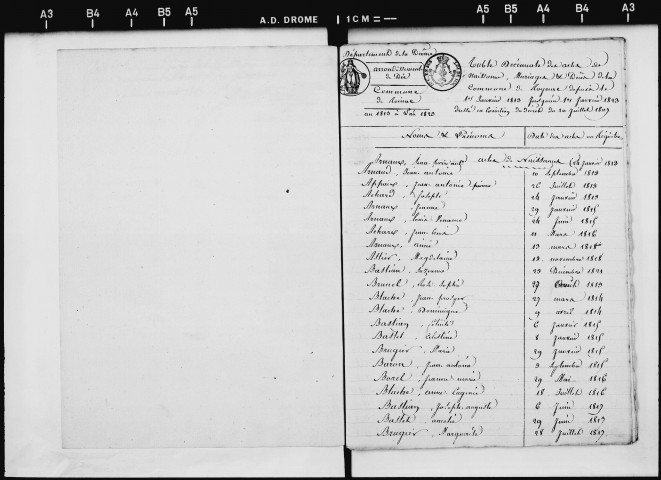 A3 B4 A4 B5 A5 A.D. DROME 1 CM A5 B5 A4 B4 A3
Département de la Drôme
arrondissement
de Die
Commune
de
an 1813 à l'an 1823
Table Décennale des actes de
Naissance, Mariages & Décès de la
Commune de depuis le
1er Janvier 1813 jusqu'au 1er Janvier 1823
du 20 Juillet 1807
Noms & Prénoms Date des actes au Registre
actes de Naissances
Arnaux, Janvier 1813
Arnaud, Jean antoine 10 Septembre 1813
Appaix, Jean antoine pierre 26 Juillet 1813
Achard, Joseph 24 Janvier 1813
Arnaux, Jeanne 29 Janvier 1815
Arnaux, 24 Juin 1815
Achard, Jean louis 11 Mars 1816
Arnaux, aimé 13 mars 1818
Allier, Magdelaine 13 novembre 1818
Bastian, Suzanne 23 Décembre 1821
Brunel, 27 1813
Blache, Jean 27 mars 1814
Blache, Dominique 9 avril 1814
Bastian, 6 Janvier 1815
Bastet, Célestine 8 Janvier 1815
Brugier, Marie 29 Janvier 1815
Baron, Jean antoine 3 Septembre 1815
Borel, Jeanne marie 29 Mai 1816
Blache, Eugénie 18 Juillet 1816
Bastian, Joseph auguste 6 Juin 1817
Bastet, amélie 29 Juin 1817
Brugier, Marguerite 28 Juillet 1817